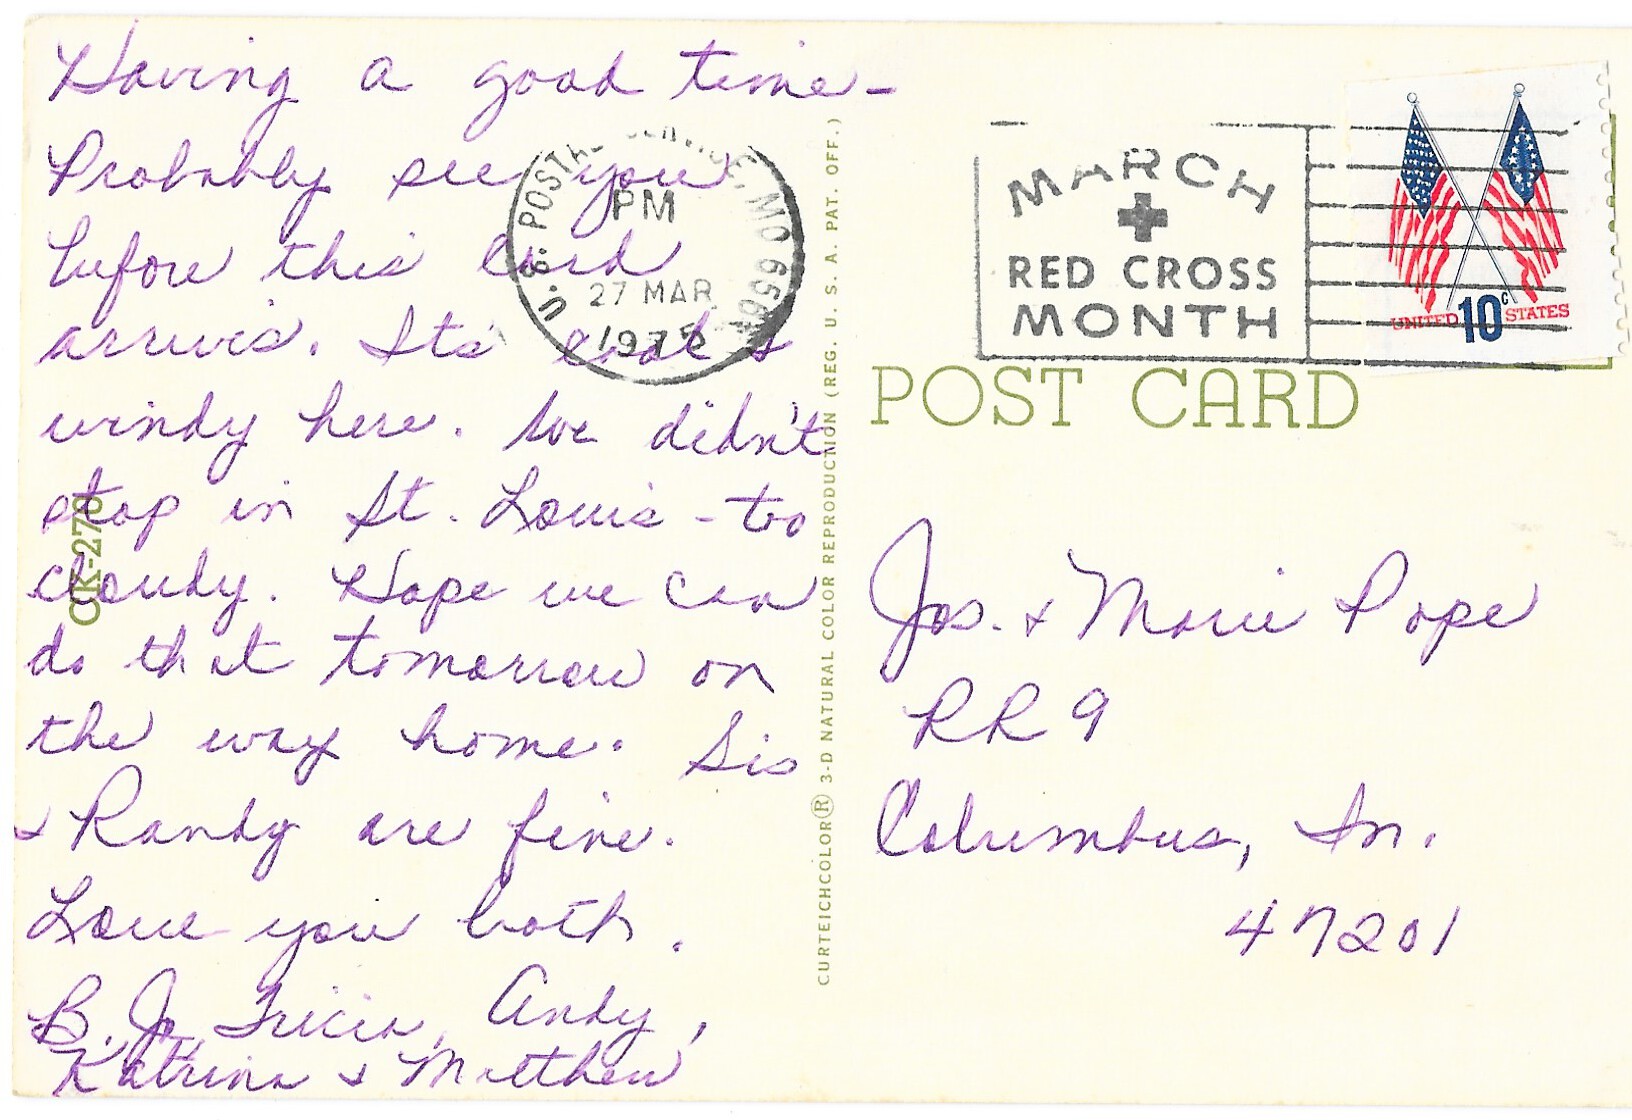 Having a good time -
Probably see you
before this card
arrives. Its cool &
windy here. We didn't
stop in St. Louis - too
cloudy. Hope we can
do that tomorrow on
the way home. Sis
& Randy are fine.
Love you both.
B. J., Tricia, Andy,
Katrina & Matthew
CK-278
U.S. POSTAL SERVICE, MO
PM
27 MAR
1975
CURTEICHCOLOR® 3-D NATURAL COLOR REPRODUCTION (REG. U. S. A. PAT. OFF.)
MARCH
RED CROSS
MONTH
UNITED 10c STATES
POST CARD
Jos. & Marie Pope
RR 9
Columbus, In.
47201